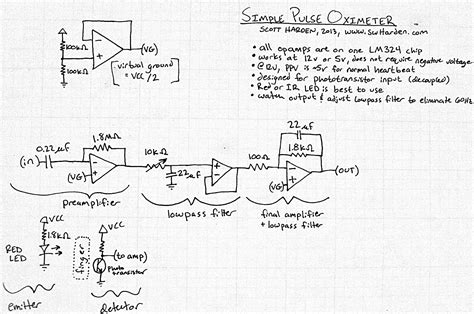 SIMPLE PULSE OXIMETER
SCOTT HARDEN, 2013, www.SwHarden.com
• all opamps are on one LM324 chip
• works at 12v or 5v, does not require negative voltage
• @12v, PPV is ~5v for normal heartbeat
• designed for phototransistor input (decoupled)
• Red or IR LED is best to use
• watch output & adjust lowpass filter to eliminate 60Hz
100kΩ
100kΩ
(VG)
virtual ground
= VCC/2
(in)
0.22µF
1.8MΩ
(VG)
preamplifier
10KΩ
22µF
lowpass filter
100Ω
22µF
1.8KΩ
(VG)
(OUT)
final amplifier
+ lowpass filter
VCC
1.8kΩ
RED
LED
emitter
finger
VCC
(to amp)
Photo
transistor
detector